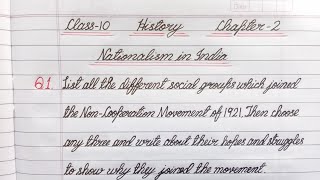 Class-10 History Chapter-2
Nationalism in India
Q1. List all the different social groups which joined
the Non-Cooperation Movement of 1921. Then choose
any three and write about their hopes and struggles
to show why they joined the movement.